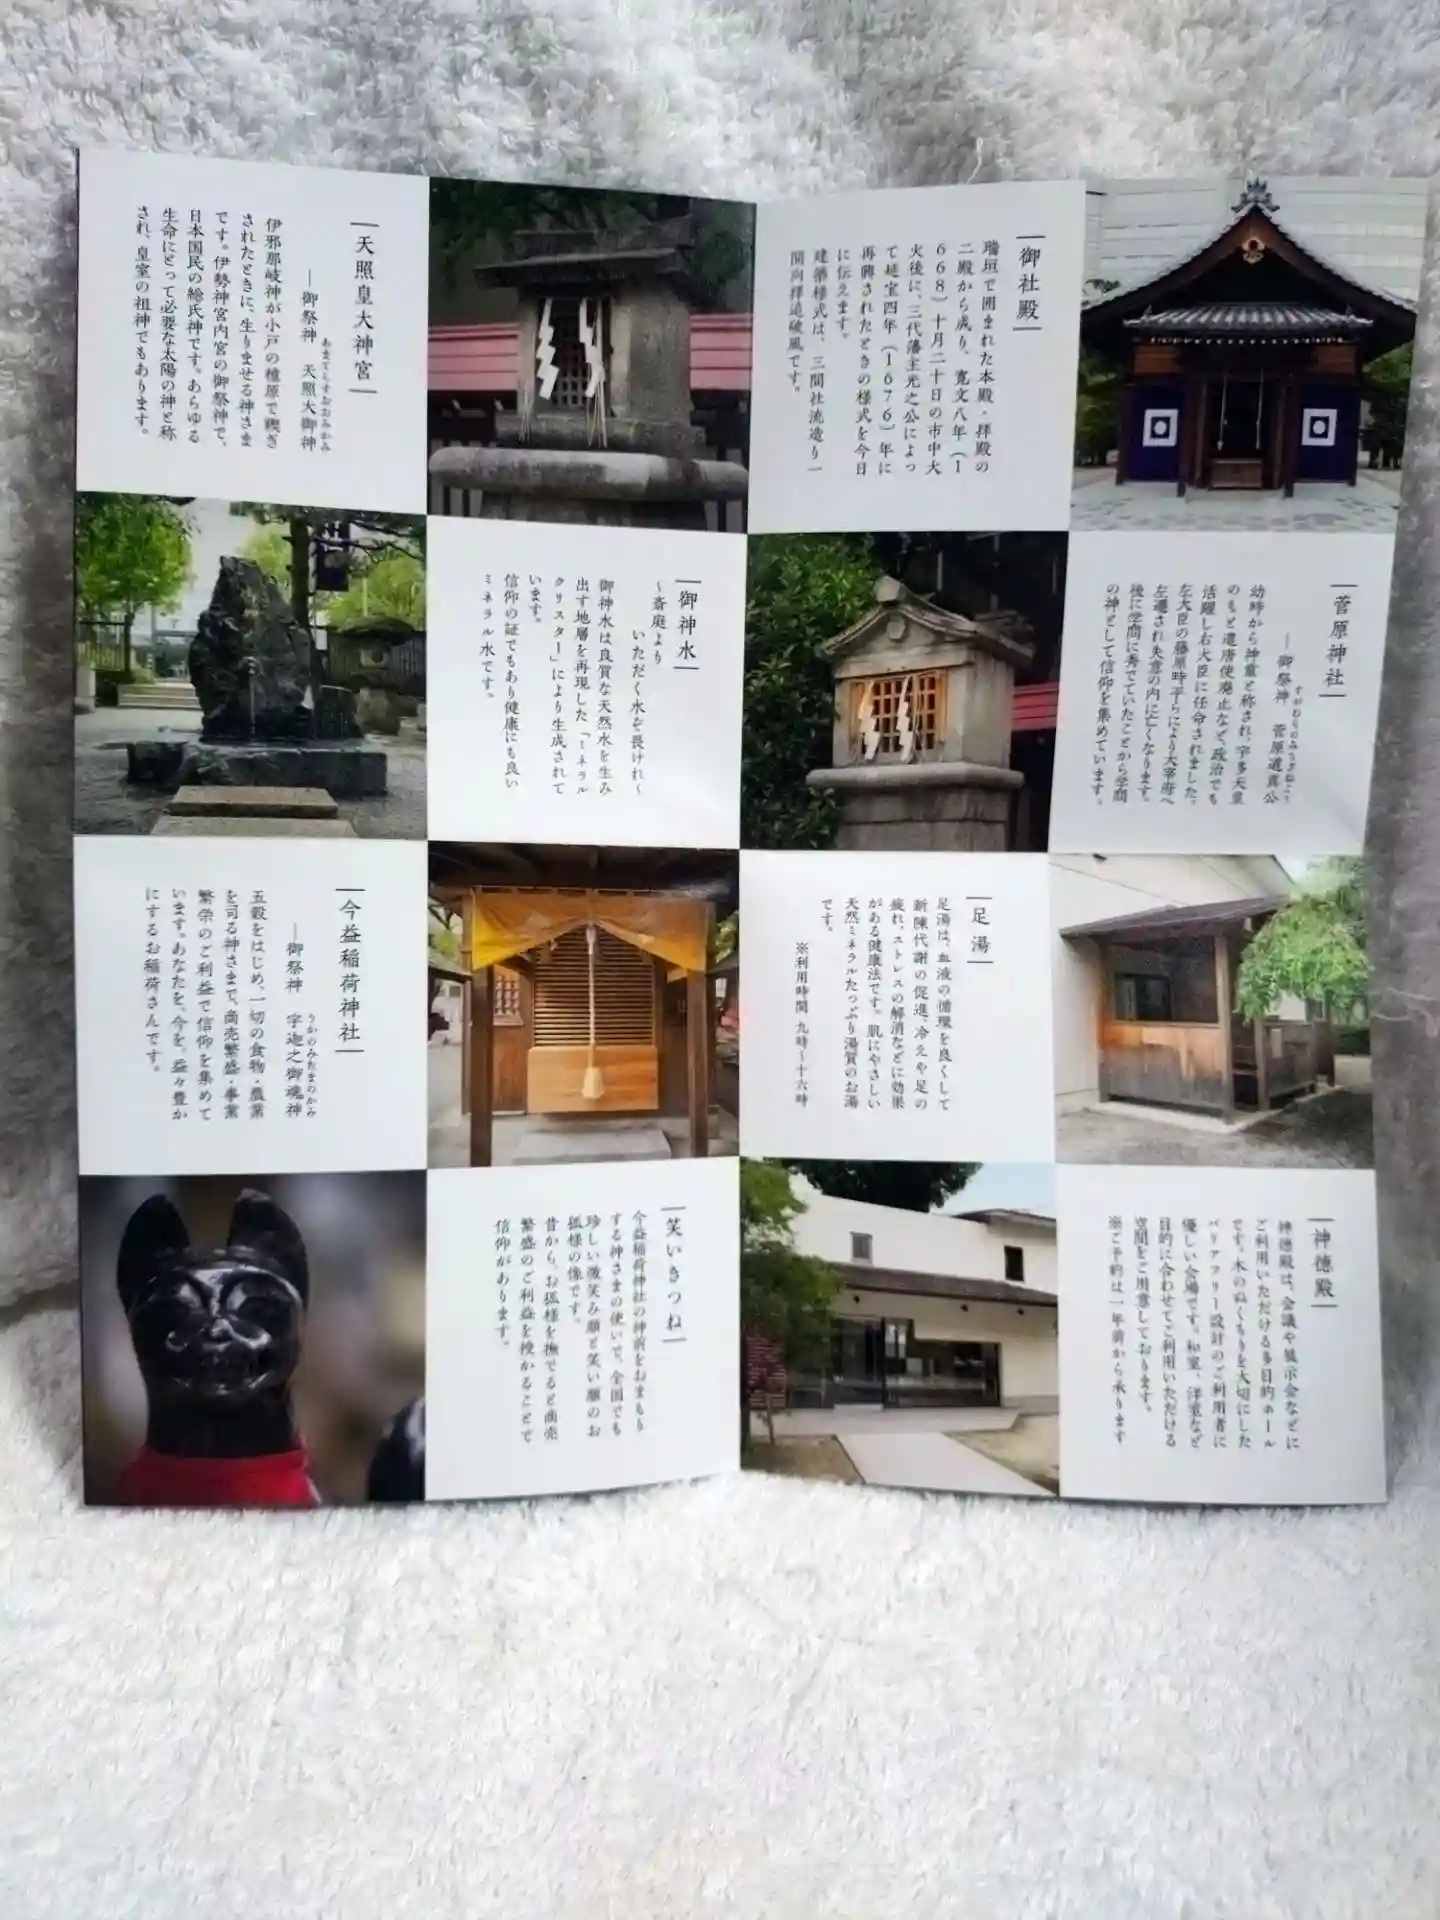 御社殿
瑞垣で囲まれた本殿・拝殿の
二殿から成り、寛文八年（1
668）十月二十日の市中大
火後に、三代藩主光之公によっ
て延宝四年（1676）年に
再興されたときの様式を今日
に伝えます。
建築様式は、三間社流造り一
間向拝造破風です。
天照皇大神宮
―御祭神　天照大御神
あまてらすおおみかみ
伊邪那岐神が小戸の檍原で禊ぎ
されたときに、生りませる神さま
です。伊勢神宮内宮の御祭神で、
日本国民の総氏神です。あらゆる
生命にとって必要な太陽の神と称
され、皇室の祖神でもあります。
菅原神社
―御祭神　菅原道真公
すがわらのみちざねこう
幼時から神童と称され、宇多天皇
のもと遣唐使廃止など、政治でも
活躍し右大臣に任命されました。
左大臣の藤原時平らにより大宰府へ
左遷され失意の内に亡くなります。
後に学問に秀でていたことから学問
の神として信仰を集めています。
御神水
～斎庭より
いただく水ぞ畏けれ～
御神水は良質な天然水を生み
出す地層を再現した「ミネラル
クリスター」により生成されて
います。
信仰の証でもあり健康にも良い
ミネラル水です。
足湯
足湯は、血液の循環を良くして
新陳代謝の促進、冷えや足の
疲れ、ストレスの解消などに効果
がある健康法です。肌にやさしい
天然ミネラルたっぷり湯質のお湯
です。
※利用時間 九時～十六時
今益稲荷神社
―御祭神　宇迦之御魂神
うかのみたまのかみ
五穀をはじめ、一切の食物・農業
を司る神さまで、商売繁盛・事業
繁栄のご利益で信仰を集めて
います。あなたを、今を。益々豊か
にするお稲荷さんです。
神徳殿
神徳殿は、会議や展示会などに
ご利用いただける多目的ホール
です。木のぬくもりを大切にした
バリアフリー設計のご利用者に
優しい会場です。和室、洋室など
目的に合わせてご利用いただける
空間をご用意しております。
※ご予約は一年前から承ります
笑いきつね
今益稲荷神社の神前をおまもり
する神さまの使いで、全国でも
珍しい微笑み顔と笑い顔のお
狐様の像です。
昔から、お狐様を撫でると商売
繁盛のご利益を授かることで
信仰があります。